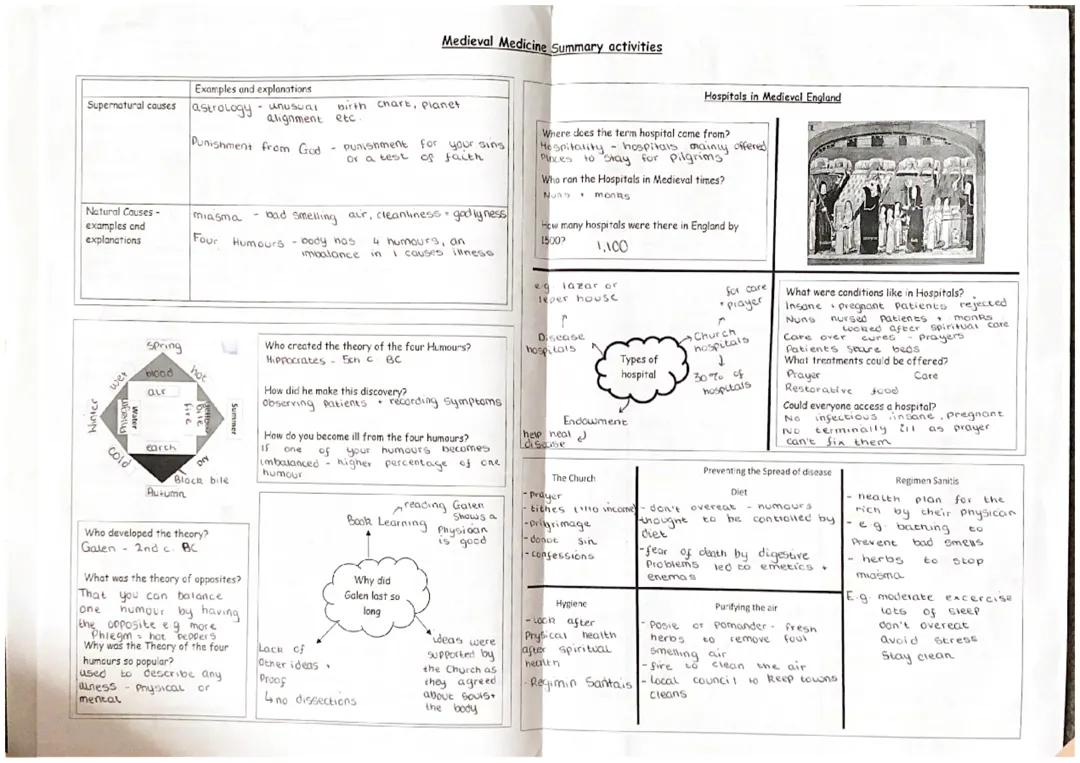 Medieval Medicine Summary activities
Examples and explanations
Supernatural causes
astrology - unusual birth chart, planet
alignment etc.
Punishment from God - punishment for your sins
or a test of faith
Natural Causes -
examples and
explanations
miasma - bad smelling air, cleanliness + godlyness
Four Humours - body has 4 humours, an
imbalance in 1 causes illness
Spring
wet
blood
hot
air
Winter
phlegm
water
fire
yellow
Bile
Summer
earch
cold
Dry
Black bile
Autumn
Who created the theory of the four Humours?
Hippocrates - 5th c BC
How did he make this discovery?
Observing patients + recording symptoms
How do you become ill from the four humours?
If one of your humours becomes
imbalanced - higher percentage of one
humour
Who developed the theory?
Galen - 2nd c. BC
What was the theory of opposites?
That you can balance
one humour by having
the opposite e.g more
Phlegm = hot peppers
Why was the Theory of the four
humours so popular?
used to describe any
illness - physical or
mental
Why did
Galen last so
long
Book Learning
reading Galen
shows a
Physician
is good
Lack of
Other ideas +
Proof
↳ no dissections
ideas were
supported by
the Church as
they agreed
about souls +
the body
Hospitals in Medieval England
Where does the term hospital come from?
Hospitality - hospitals mainly offered
places to stay for pilgrims
Who ran the Hospitals in Medieval times?
Nuns + monks
How many hospitals were there in England by
1500?
1,100
e.g lazar or
leper house
Disease
hospitals
Types of
hospital
for care
+ prayer
Church
hospitals
30% of
hospitals
Endowment
help heal
disease
What were conditions like in Hospitals?
Insane + pregnant patients rejected
Nuns nursed patients + monks
looked after spiritual care
Care over cures - prayers
Patients share beds
What treatments could be offered?
Prayer Care
Restorative food
Could everyone access a hospital?
No infectious, insane, pregnant
No terminally ill as prayer
can't fix them
Preventing the Spread of disease
The Church
- prayer
- tithes (1/10 income)
- pilgrimage
- donot sin
- confessions
Diet
- don't overeat - humours
thought to be controlled by
diet
- fear of death by digestive
Problems led to emetics +
enemas
Regimen Sanitis
- health plan for the
rich by their physican
- e.g. bathing to
Prevent bad smells
- herbs to stop
miasma
E.g. moderate excercise
lots of sleep
don't overeat
avoid stress
Stay clean
Hygiene
- look after
Physical health
after spiritual
health
- Regimin Sanitais
Purifying the air
- Posie or Pomander - fresh
herbs to remove foul
smelling air
- fire to clean the air
- local council to keep towns
cleans